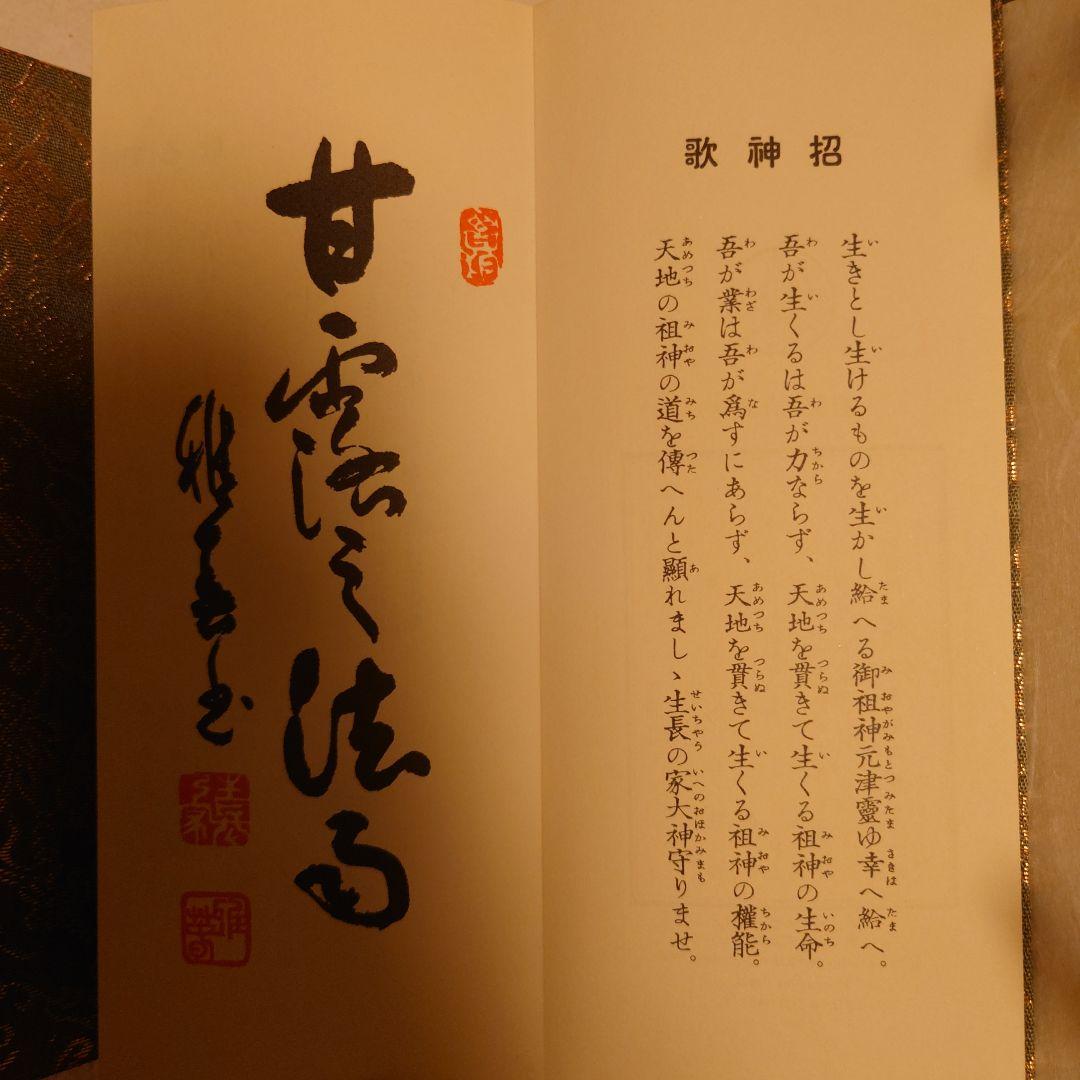 招神歌
生きとし生けるものを生かし給へる御祖神元津靈ゆ幸へ給へ。
吾が生くるは吾が力ならず、天地を貫きて生くる祖神の生命。
吾が業は吾が爲すにあらず、天地を貫きて生くる祖神の權能。
天地の祖神の道を傳へんと顯れましゝ生長の家大神守りませ。
甘露之法雨
雅春書